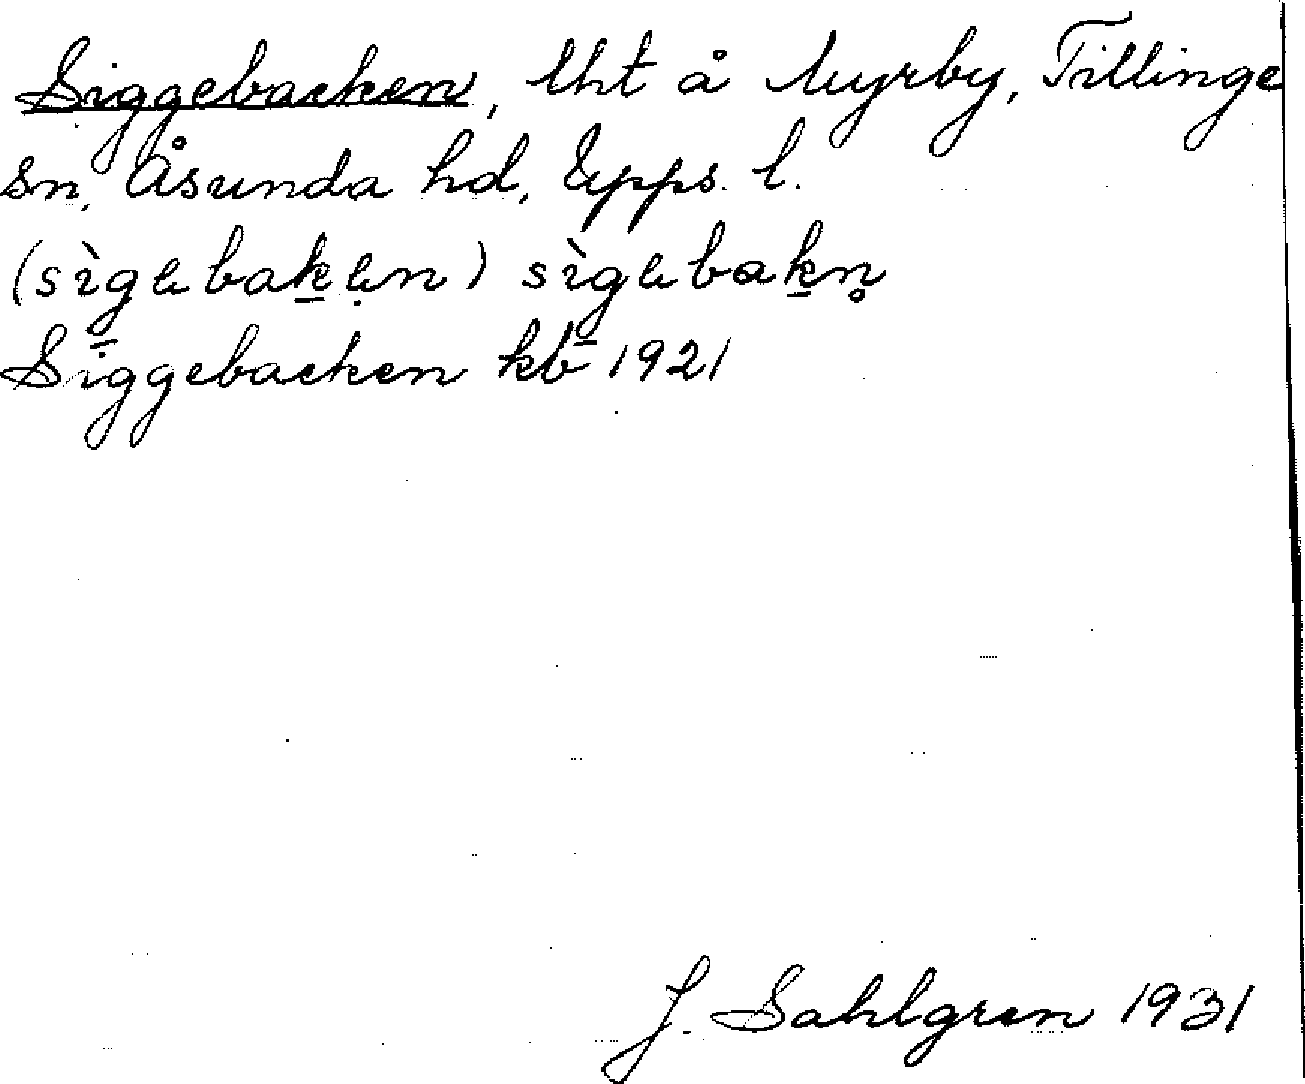 Siggebacken, lht å Myrby, Tillinge
sn, Åsunda hd, Upps. l.
(sìgebaken) sìgebakn̥
Siggebacken kb 1921
J. Sahlgren 1931